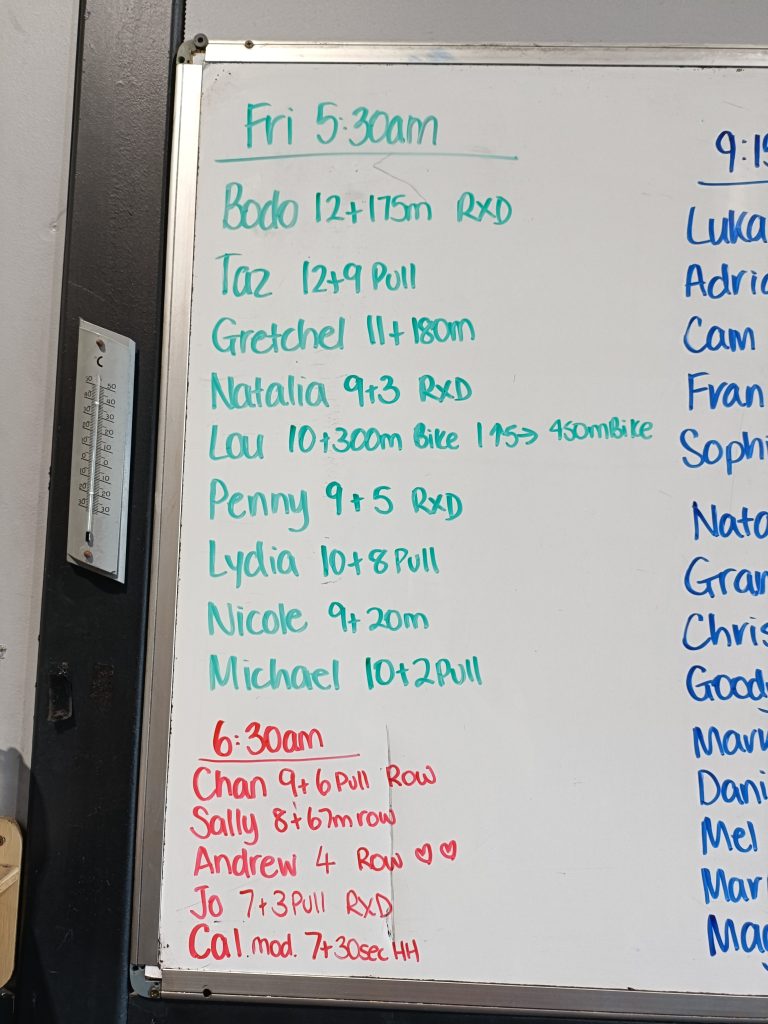 Fri 5:30am
Bodo 12+175m RXD
Taz 12+9 Pull
Gretchel 11+180m
Natalia 9+3 RXD
Lou 10+300m Bike 1↑5→ 450mBike
Penny 9+5 RXD
Lydia 10+8 Pull
Nicole 9+20m
Michael 10+2 Pull
6:30am
Chan 9+6 Pull Row
Sally 8+67m row
Andrew 4 Row ♡♡
Jo 7+3 Pull RXD
Cal. mod. 7+30sec HH
9:15
Luka
Adri
Cam
Fran
Soph
Nata
Gran
Chris
Good
Mar
Dani
Mel
Mar
Mag
°C